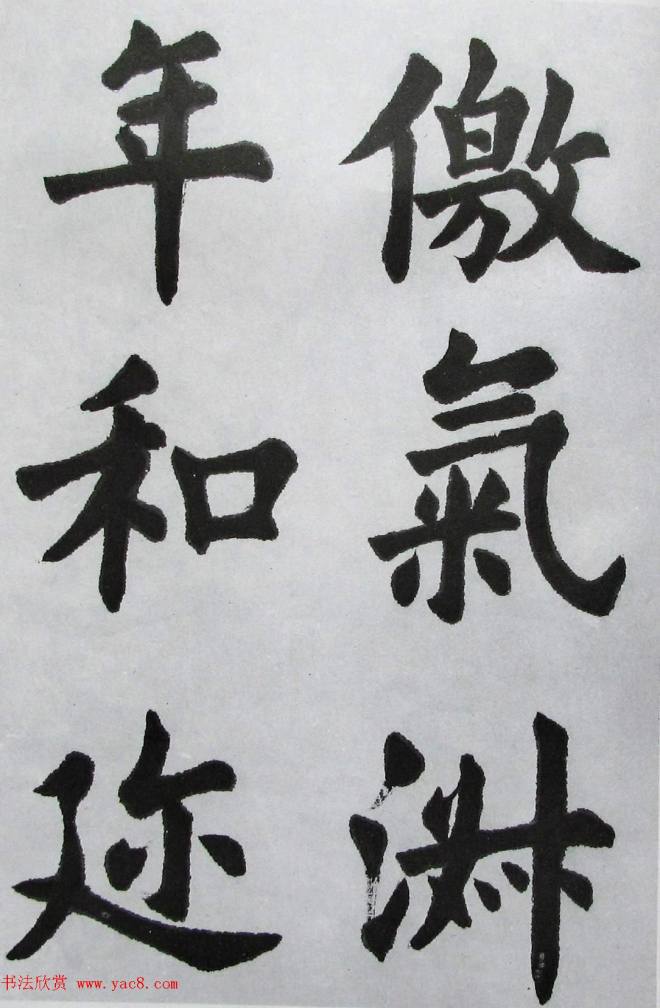 儌氣
年和迩
书法欣赏 www.yac8.com